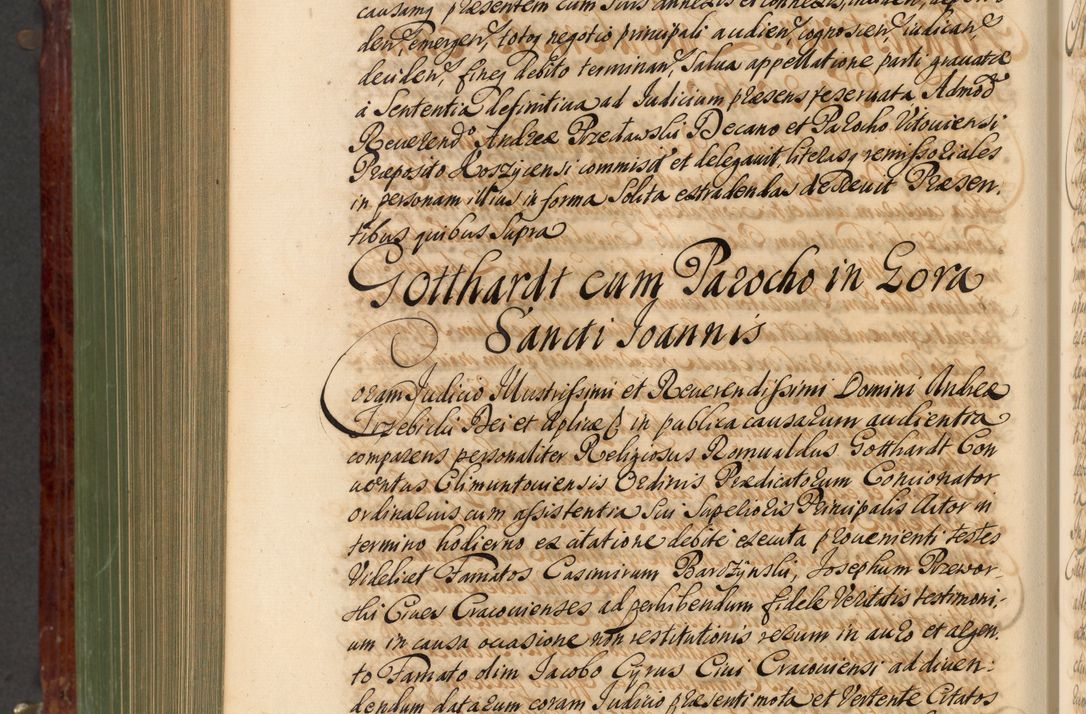 causamq praesentem cum suis annexis et connexis, inciden, depen
den, emergen, totoq negotio principali audien, cognoscen iudican
deciden, fineq debito terminan, Salua appellatione parti grauatae
a Sententia definitiua ad Iudicium praesens reseruata Admod
Reuerendo Andreae Przecławski Decano et Parocho Vitouiensi
Praeposito Koszycensi commisit et delegauit, literasq remissoriales
in personam illius in forma solita extradendas decreuit Praesen,
tibus quibus supra
Gotthardt cum Parocho in Gora
Sancti Joannis
Coram Iudicio Illustrissimi et Reuerendissimi Domini Andreae
Trzebicki Dei et Aplicae in publica causarum audientia
comparens personaliter Religiosus Romualdus Gotthardt Con
uentus Climuntouiensis Ordinis Praedicatorum Concionator
ordinarius cum assistentia sui Superioris Principalis Actor in
termino hodierno ex citatione debite executa prouenienti testes
Videlicet Famatos Casimirum Bardzynski, Josephum Przewor-
ski Ciues Cracouienses ad perhibendum fidele Veritatis testimoni-
um in causa occasione non restitutionis rerum in auro et argen,
to Famato olim Jacobo Cyrus Ciui Cracouiensi ad diuen:
dendum datarum coram Iudicio praesenti mota et Vertente Citatos